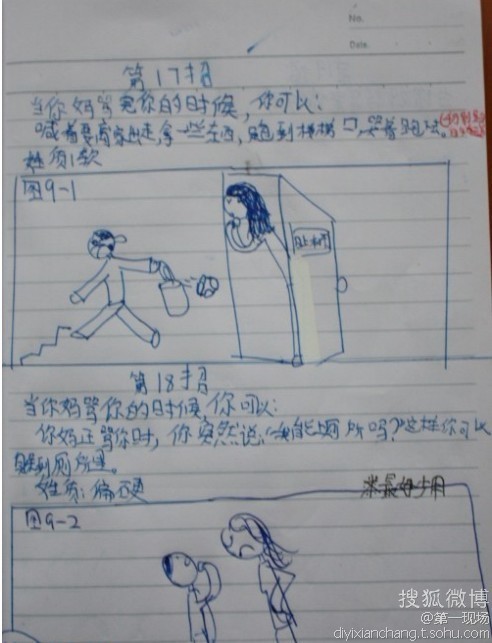 No.
Date
第17招
当你妈骂完你的时候,你可以:
喊着要离家出走拿一些东西,跑到楼梯口,哭着跑法。
性质:软
图9-1
第18招
当你妈骂你的时候,你可以:
你妈正骂你时,你突然说:"我能上厕所吗?"这样你可以
跑到厕所里。
性质:偏硬
最好少用
图9-2
搜狐微博
@第一现场
diyixianchang.t.sohu.com